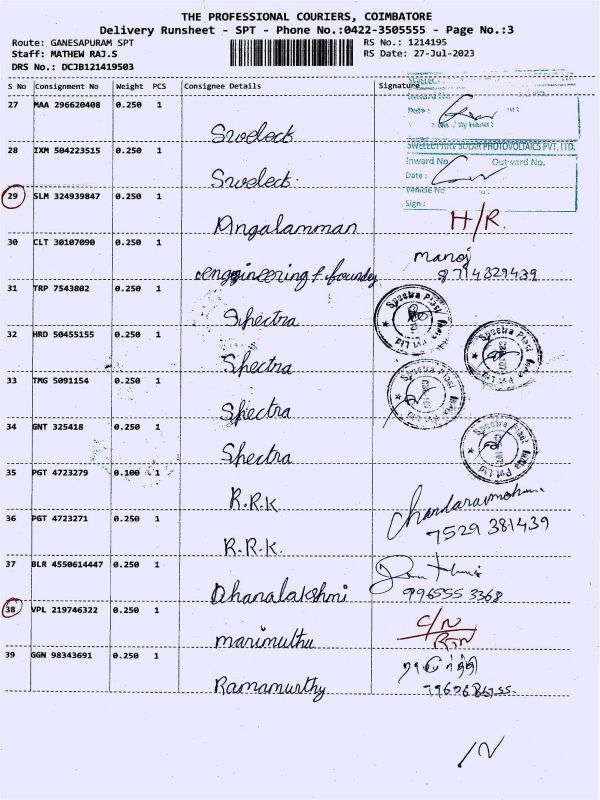 THE PROFESSIONAL COURIERS, COIMBATORE
Delivery Runsheet - SPT - Phone No.:0422-3505555 - Page No.:3
Route: GANESAPURAM SPT RS No.: 1214195
Staff: MATHEW RAJ.S RS Date: 27-Jul-2023
DRS No.: DCJB121419503
S No Consignment No Weight PCS Consignee Details Signature
27 MAA 296620408 0.250 1
Swelect
28 IXM 504223515 0.250 1
SWELECT SOLAR PHOTOVOLTAICS PVT. LTD.
Inward No. Outword No.
Date :
Vehicle No
Sign :
Swelect.
29 SLM 324939847 0.250 1
Angalamman H/R.
30 CLT 30107090 0.250 1
enggineering & foundry Manoj
8714329439
31 TRP 7543802 0.250 1
Sphectra Spectra Plast India Pvt Ltd
32 HRD 50455155 0.250 1
Sphectra Spectra Plast India Pvt Ltd
33 TMG 5091154 0.250 1
Sphectra Spectra Plast India Pvt Ltd
34 GNT 325418 0.250 1
Sphectra Spectra Plast India Pvt Ltd
35 PGT 4723279 0.100 1
R.R.K
36 PGT 4723271 0.250 1
R.R.K. 7529 381439
37 BLR 4550614447 0.250 1
Dhanalakshmi 996555 3368
38 VPL 219746322 0.250 1
marimuthu C/N
RTN
39 GGN 98343691 0.250 1
Ramamurthy